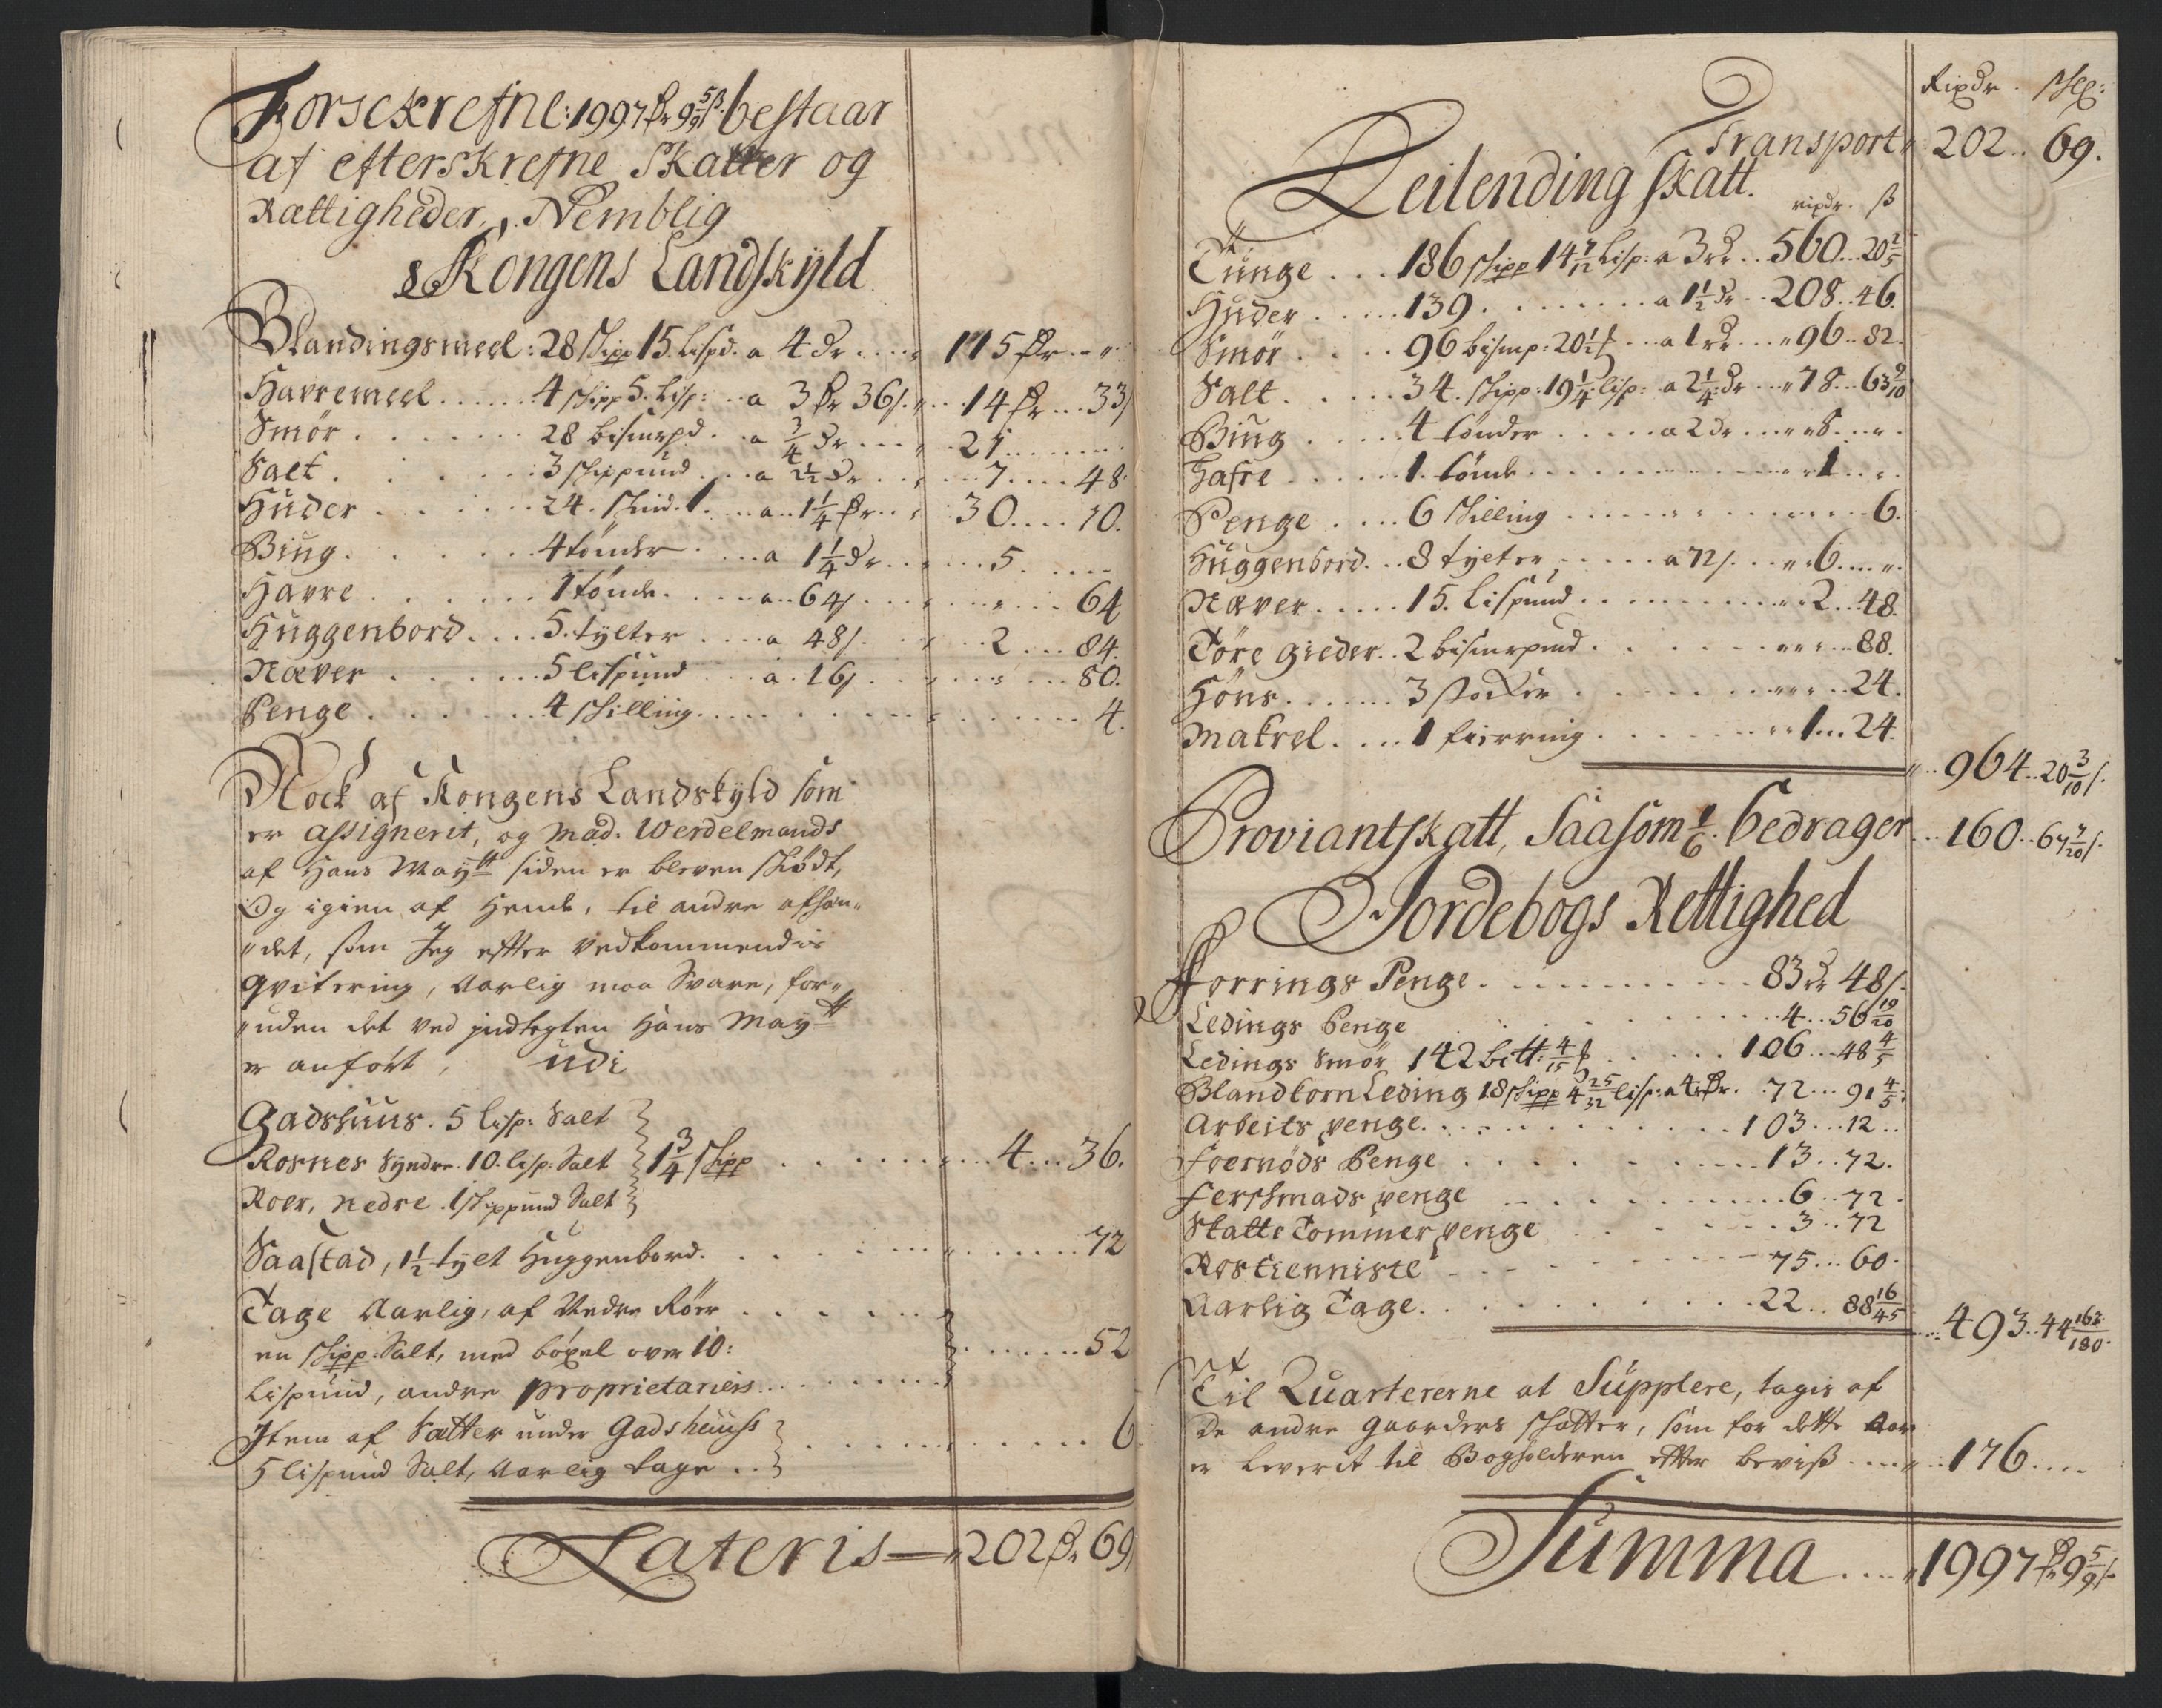 Forsckrefne: 1997 Rdr 9 5/9 ß bestaar
af efterskrefne Skatter og
Rættigheder, Nemblig
Kongens Landskyld
Blandingsmeel: 28 skipp 15. Lispd. a 4 Dr .... 115 Rdr .. "
Havremeel ..... 4 skipp 5. Lisp: .. a 3 Rdr 36 s. .. 14 Rdr ... 33 s
Smör ...... 28 bismrpd. .. a 3/4 Dr .... 21 ......
Salt ...... 3 skippund ... a 2 1/2 Dr ..... 7 .... 48
Huder ...... 24. skind. 1. ... a .. 1 1/4 Rdr .. 30 .... 10.
Biug ...... 4 tönder .... a 1 1/4 Dr ..... 5 .....
Havre ...... 1 tönde. .... a .. 64 s ...... 64
Huggenbord .... 5. tylter .... a 48 s. .... 2 ... 84.
Næver ...... 5 lispund ... a . 16 s ...... 80.
Penge ...... 4 skilling ............ 4.
Nock af Kongens Landskyld som
er assignerit, og Mad. Werdelmands
af Hans Maytt siden er bleven skiödt,
Og igien af Hende, til andre afhæn„
„det, som Jeg effter Vedkommendis
qvitering, Aarlig maa Svare, for„
„uden det ved indtegten Hans Maytt
er anfört, udi
Gadshuus. 5 Lisp: Salt
Rosnes Syndre. 10. lisp: Salt } 1 3/4 skipp ........ 4 ... 36.
Roer, nedre . 1 skippund Salt
Saastad, 1 1/2 tylt Huggenbord. ......... 72
Tage Aarlig, af Nedre Röer ......
en skipp: Salt, med böxel over 10: ..... 52
Lispund, andre proprietariers ......
Item af Satter under Gadshuuss
5 lispund Salt, Aarlig tage .. } ........ 6
Lateris — 202 Rdr 69
Rixdr. skl:
Transport 202 .. 69.
Leilending skatt.
rixdr. ß
Tunge ... 186 skipp 14 7/12 Lisp: a 3 Rdr .. 560 .. 20 2/5
Huder ..... 139 ........ a 1 1/2 Dr .. 208 .. 46.
Smör .... 96 bismp: 20 1/2 ... a 1 Rdr ... 96 .. 82.
Salt ..... 34. skipp: 19 1/4 lisp: a 2 1/4 Dr ... 78 .. 63 9/10
Biug ..... 4 tönder ..... a 2 Dr .... 8 ... "
Hafre ..... 1. tönde ............ 1 ... "
Penge .... 6 skilling ............ 6.
Huggenbord. .. 8 tylter ..... a 72 s. .. 6 .... "
Næver ..... 15. Lispund .......... 2 .. 48.
Töre gieder .. 2 bismrpund ......... 88.
Höns ...... 3 stocker ........ 24.
Makrel .... 1 fierring ......... 1 ... 24.
964 .. 20 3/10 s.
Proviantskatt, Saasom 1/6. bedrager .. 160 .. 67 7/20 s.
Jordebogs Rettighed
Forrings Penge .......... 83 Rdr 48 s.
Ledings Penge ......... 4 .. 56 19/20
Ledings Smör 142 bitt: 4/15 ..... 106 ... 48 4/5
Blandkorn Leding 18 skipp 4 25/32 lisp: a 4 Rdr. . 72 ... 91 4/5
Arbeits penge. ......... 103 ... 12 ..
Foernöds Penge ........ 13 .. 72.
Ferskmads penge ........ 6 .. 72.
Skatte Tommer penge ..... 3 .. 72
Rostienniste ....... 75 ... 60.
Aarlig Tage. ........ 22 .. 88 16/45
493 .. 44 163/180.
Til Quartererne at Supplere, tagis af
De andre gaarders skatter, som for dette Aar
er leverit til Bogholderen effter beviß ...... 176 ....
Summa .... 1997 Rdr 9 5/9 s.